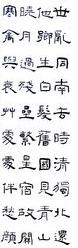 世亂同南去時清獨北還
他鄉生白髮舊國見青山
曉月過殘壘繁星宿故關
寒禽與衰草處處伴愁顏